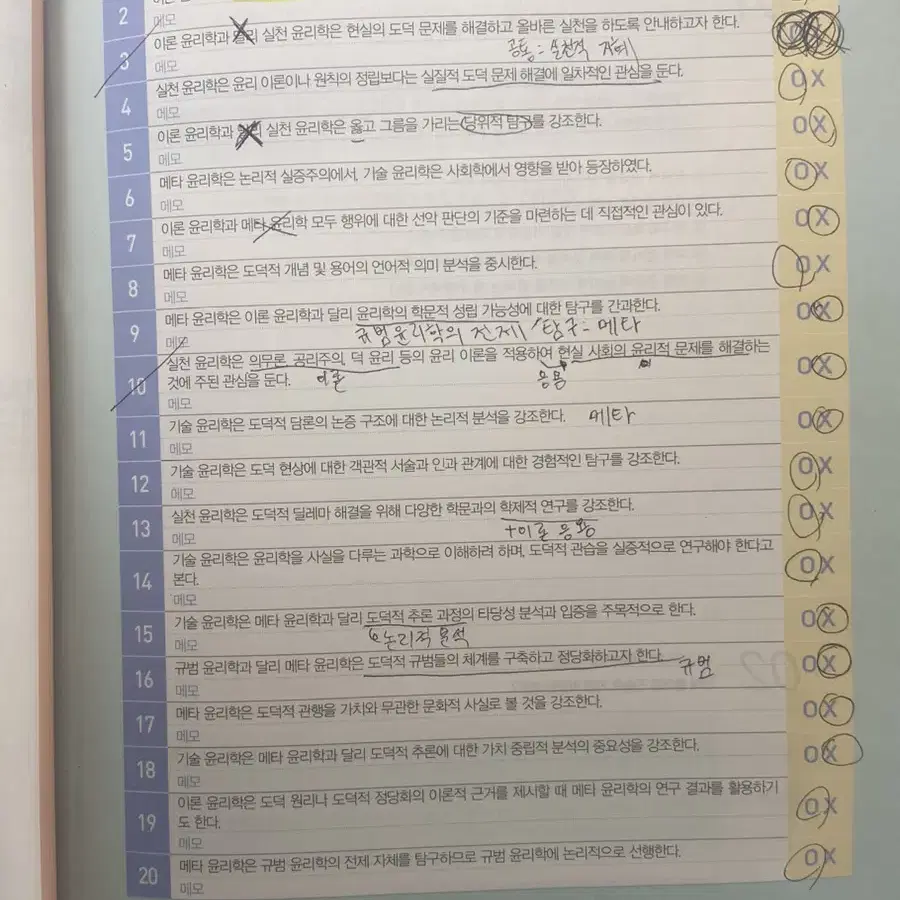 2
메모
이론 윤리학과 달리 실천 윤리학은 현실의 도덕 문제를 해결하고 올바른 실천을 하도록 안내하고자 한다.
공통 = 실천적
3
메모
실천 윤리학은 윤리 이론이나 원칙의 정립보다는 실질적 도덕 문제 해결에 일차적인 관심을 둔다. O X
4
메모
이론 윤리학과 달리 실천 윤리학은 옳고 그름을 가리는 당위적 탐구를 강조한다. O X
5
메모
메타 윤리학은 논리적 실증주의에서, 기술 윤리학은 사회학에서 영향을 받아 등장하였다. O X
6
메모
이론 윤리학과 메타 윤리학 모두 행위에 대한 선악 판단의 기준을 마련하는 데 직접적인 관심이 있다. O X
7
메모
메타 윤리학은 도덕적 개념 및 용어의 언어적 의미 분석을 중시한다. O X
8
메모
메타 윤리학은 이론 윤리학과 달리 윤리학의 학문적 성립 가능성에 대한 탐구를 간과한다. O X
규범윤리학의 전제 탐구 = 메타
9
메모
실천 윤리학은 의무론, 공리주의, 덕 윤리 등의 윤리 이론을 적용하여 현실 사회의 윤리적 문제를 해결하는 O X
것에 주된 관심을 둔다. 이론 응용
10
메모
기술 윤리학은 도덕적 담론의 논증 구조에 대한 논리적 분석을 강조한다. 메타 O X
11
메모
기술 윤리학은 도덕 현상에 대한 객관적 서술과 인과 관계에 대한 경험적인 탐구를 강조한다. O X
12
메모
실천 윤리학은 도덕적 딜레마 해결을 위해 다양한 학문과의 학제적 연구를 강조한다. O X
+이론 응용
13
메모
기술 윤리학은 윤리학을 사실을 다루는 과학으로 이해하려 하며, 도덕적 관습을 실증적으로 연구해야 한다고 O X
본다.
14
메모
기술 윤리학은 메타 윤리학과 달리 도덕적 추론 과정의 타당성 분석과 입증을 주목적으로 한다. O X
논리적 분석
15
메모
규범 윤리학과 달리 메타 윤리학은 도덕적 규범들의 체계를 구축하고 정당화하고자 한다. 규범 O X
16
메모
메타 윤리학은 도덕적 관행을 가치와 무관한 문화적 사실로 볼 것을 강조한다. O X
17
메모
기술 윤리학은 메타 윤리학과 달리 도덕적 추론에 대한 가치 중립적 분석의 중요성을 강조한다. O X
18
메모
이론 윤리학은 도덕 원리나 도덕적 정당화의 이론적 근거를 제시할 때 메타 윤리학의 연구 결과를 활용하기 O X
도 한다.
19
메모
메타 윤리학은 규범 윤리학의 전제 자체를 탐구하므로 규범 윤리학에 논리적으로 선행한다. O X
20
메모